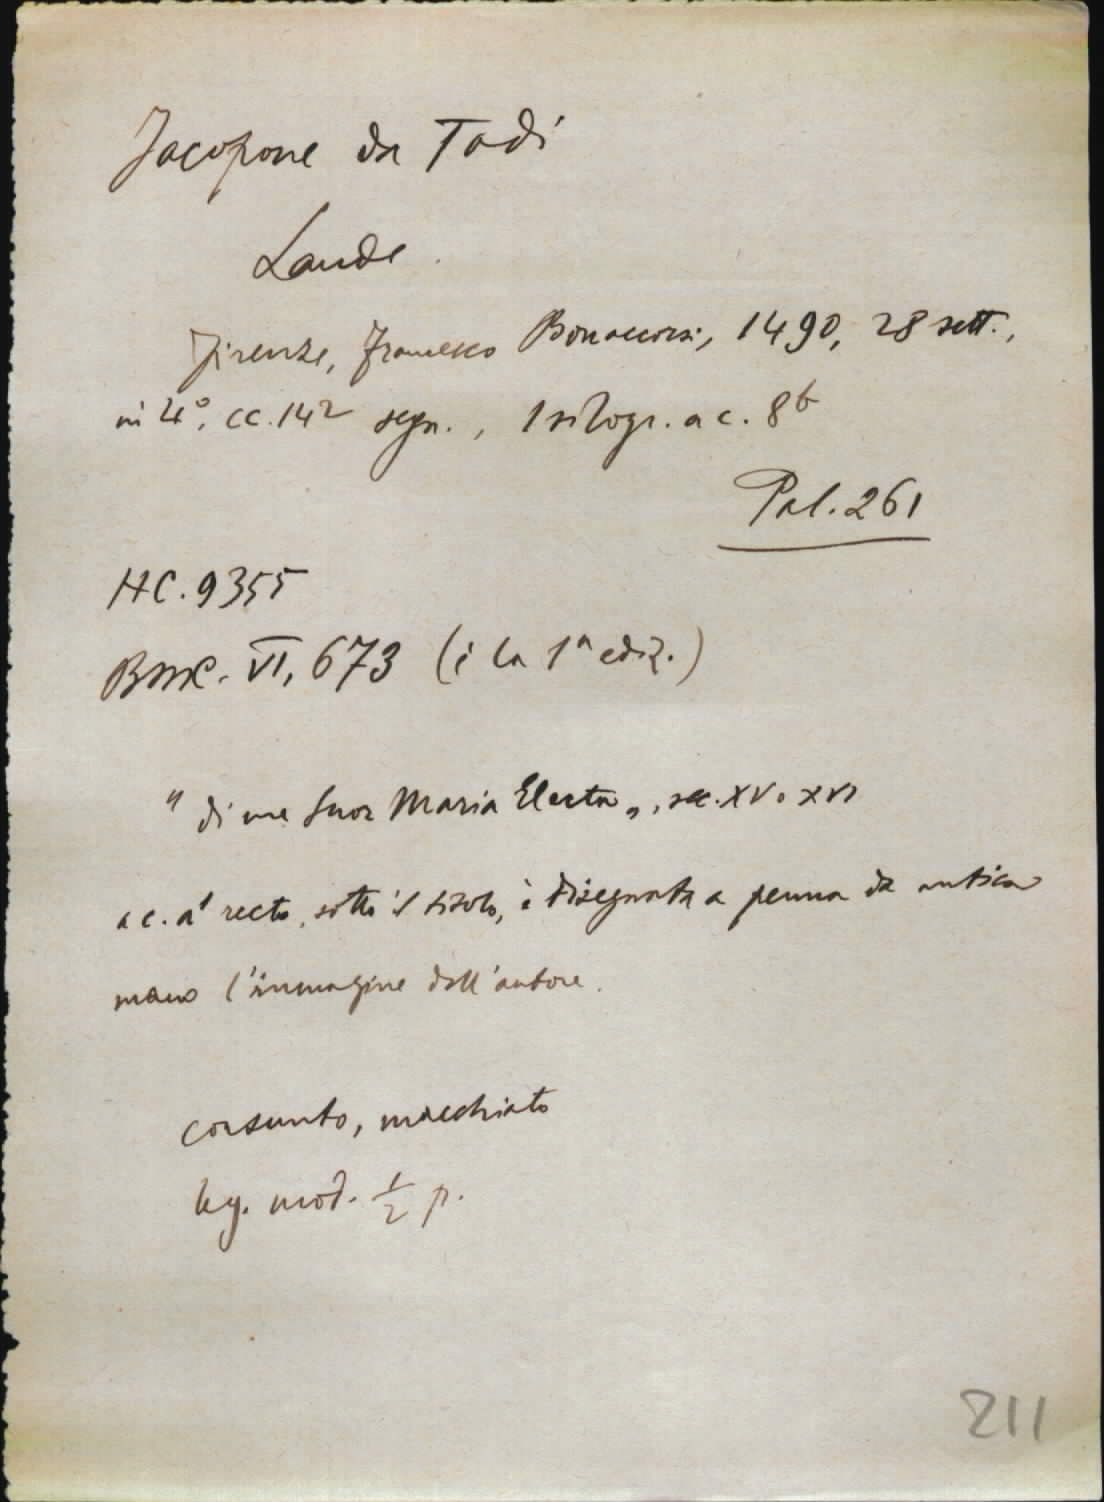 Jacopone da Todi
Laude.
Firenze, Francesco Bonaccorsi, 1490, 28 sett.,
in 4°, cc. 142 segn., 1 silogr. a c. 8b
Pal. 261
HC. 9355
BMC. VI, 673 (è la 1a ediz.)
"di me Suor Maria Electa", sec. XV o XVI
a c. a1 recto, sotto il titolo, è disegnata a penna da antica
mano l'immagine dell'autore.
consunto, macchiato
leg. mod. 1/2 p.
211